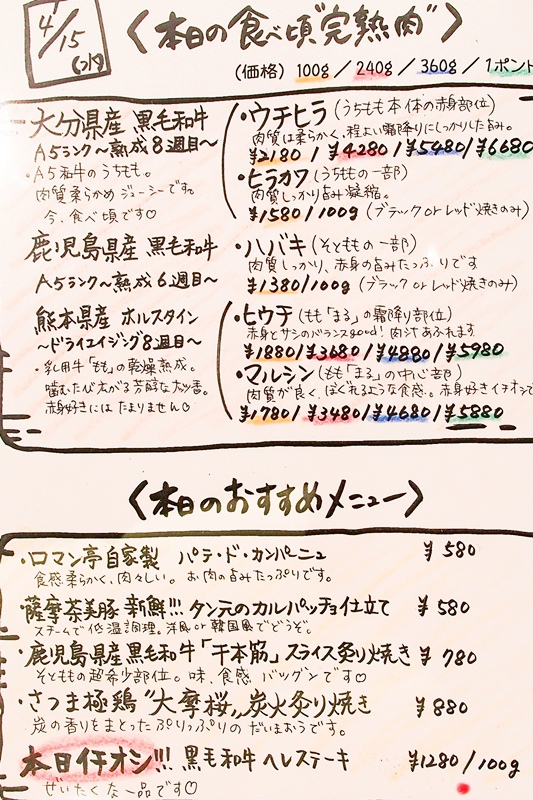 4/15(水)
〈本日の食べ頃"完熟肉"〉
(価格) 100g / 240g / 360g / 1ポント
大分県産 黒毛和牛
A5ランク〜熟成8週目〜
・A5和牛のうちもも。
肉質柔らかめ ジューシーです。
今、食べ頃です♡
・ウチヒラ(うちもも本体の赤身部位)
肉質は柔らかく、程よい霜降りにしっかりした旨み。
¥2180 / ¥4280 / ¥5480 / ¥6680
・ヒラカワ(うちももの一部)
肉質しっかり旨み凝縮。
¥1580/100g(ブラック or レッド焼きのみ)
鹿児島県産 黒毛和牛
A5ランク〜熟成6週目〜
・ハバキ(そとももの一部)
肉質しっかり、赤身の旨みたっぷりです
¥1380/100g(ブラック or レッド焼きのみ)
熊本県産 ホルスタイン
〜ドライエイジング8週目〜
・乳用牛「もも」の乾燥熟成。
噛むたび広がる芳醇な香。
赤身好きにはたまりません♡
・ヒウチ(もも「まる」の霜降り部位)
赤身とサシのバランスgood! 肉汁あふれます
¥1880 / ¥3680 / ¥4880 / ¥5980
・マルシン(もも「まる」の中心部)
肉質が良く、ほぐれるような食感。赤身好きイチオシで
¥1780 / ¥3480 / ¥4680 / ¥5880
〈本日のおすすめメニュー〉
・ロマン亭自家製 パテ・ド・カンパーニュ ¥580
食感柔らかく、肉々しい。お肉の旨みたっぷりです。
薩摩茶美豚 新鮮!!! タン元のカルパッチョ仕立て ¥580
スチームで低温調理。洋風 or 韓国風でどうぞ。
・鹿児島県産黒毛和牛「千本筋」スライス炙り焼き ¥780
そとももの超希少部位。味、食感 バツグンです♡
・さつま極鶏"大摩桜〟炭火炙り焼き ¥880
炭の香りをまとったぷりっぷりの だいまおうです。
本日イチオシ!!! 黒毛和牛 ヘレステーキ ¥1280/100g
ぜいたくな一品です♡